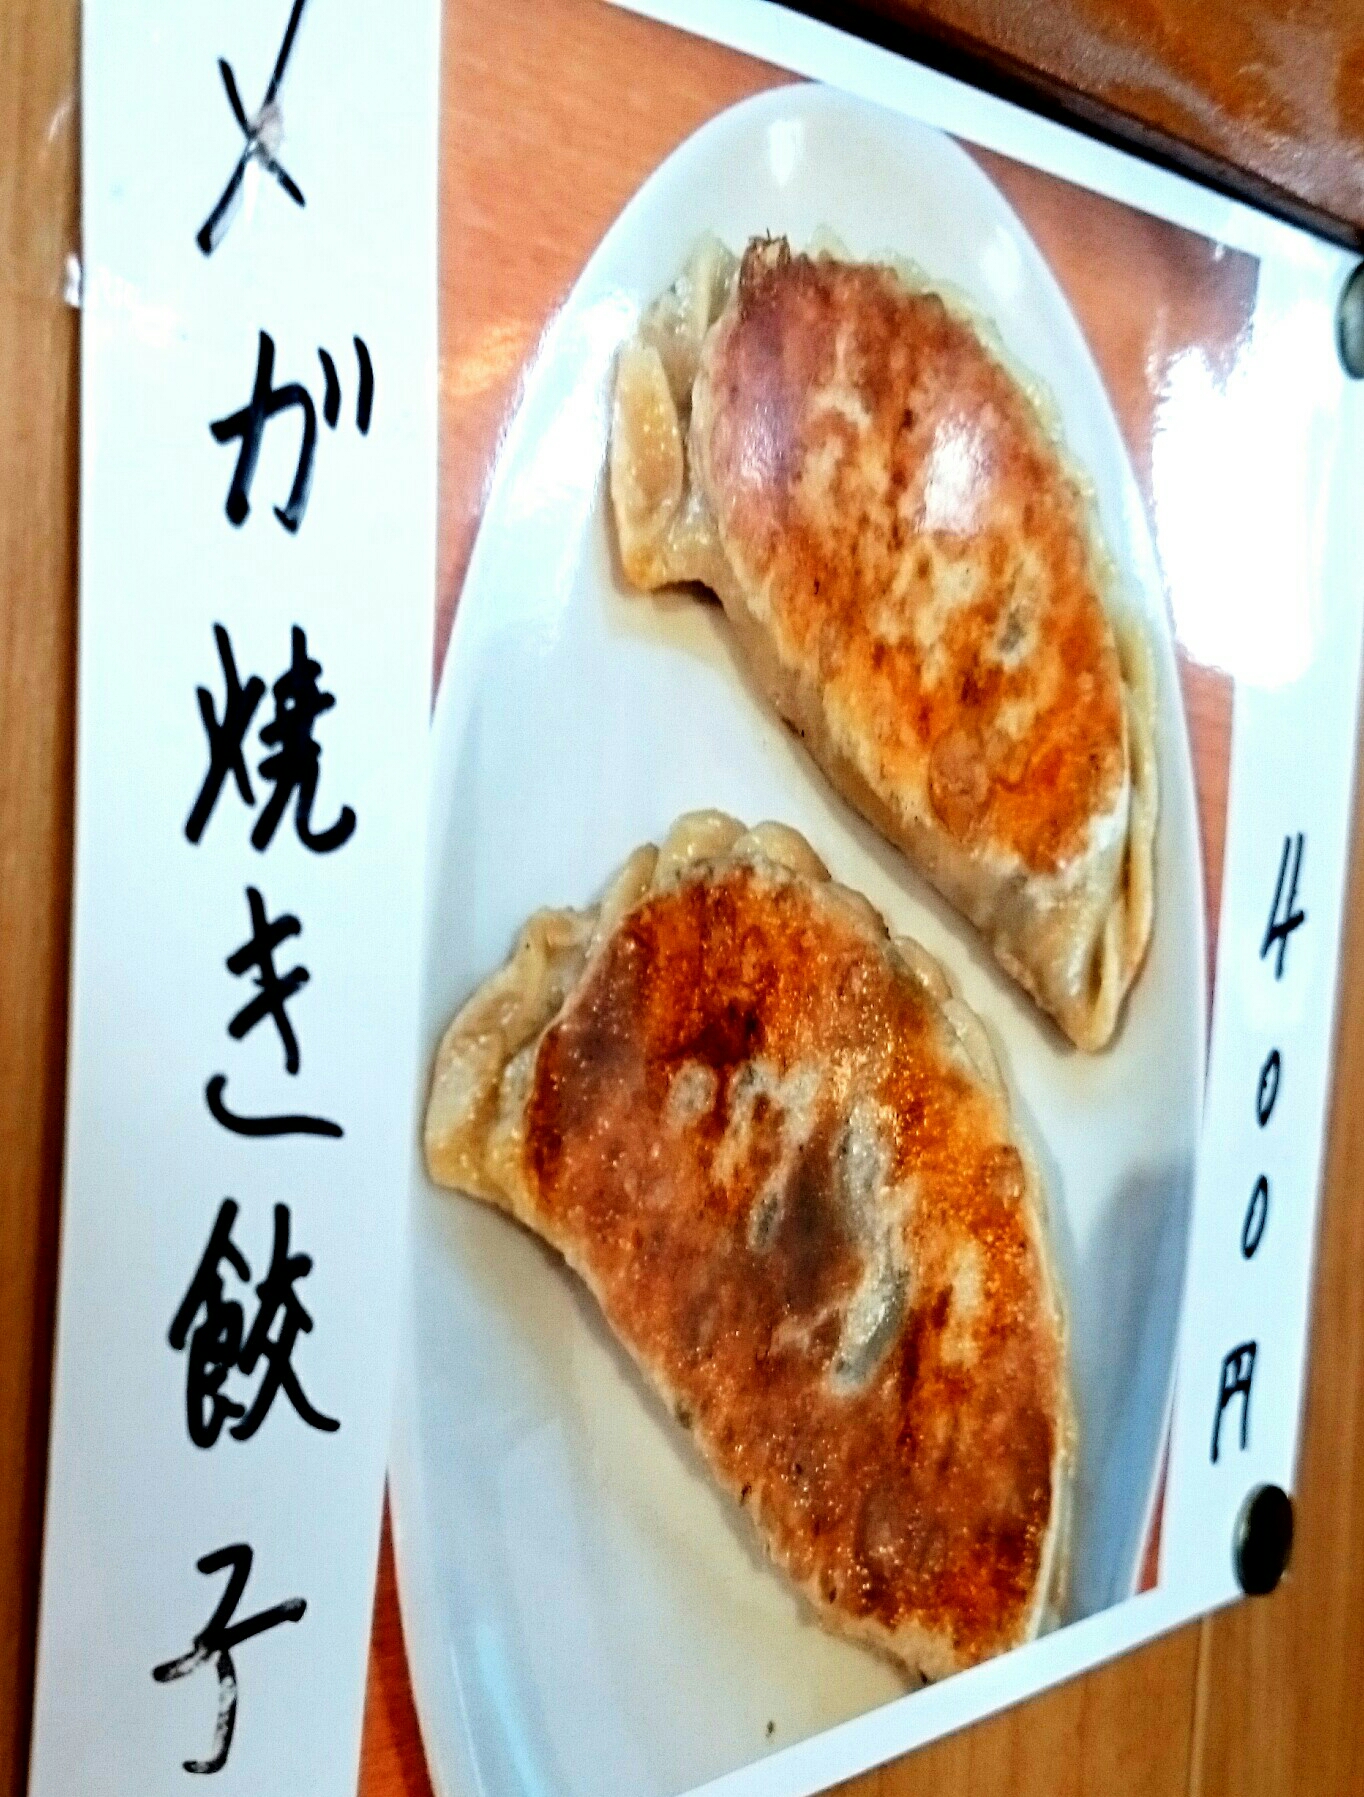 メガ焼き餃子
400円